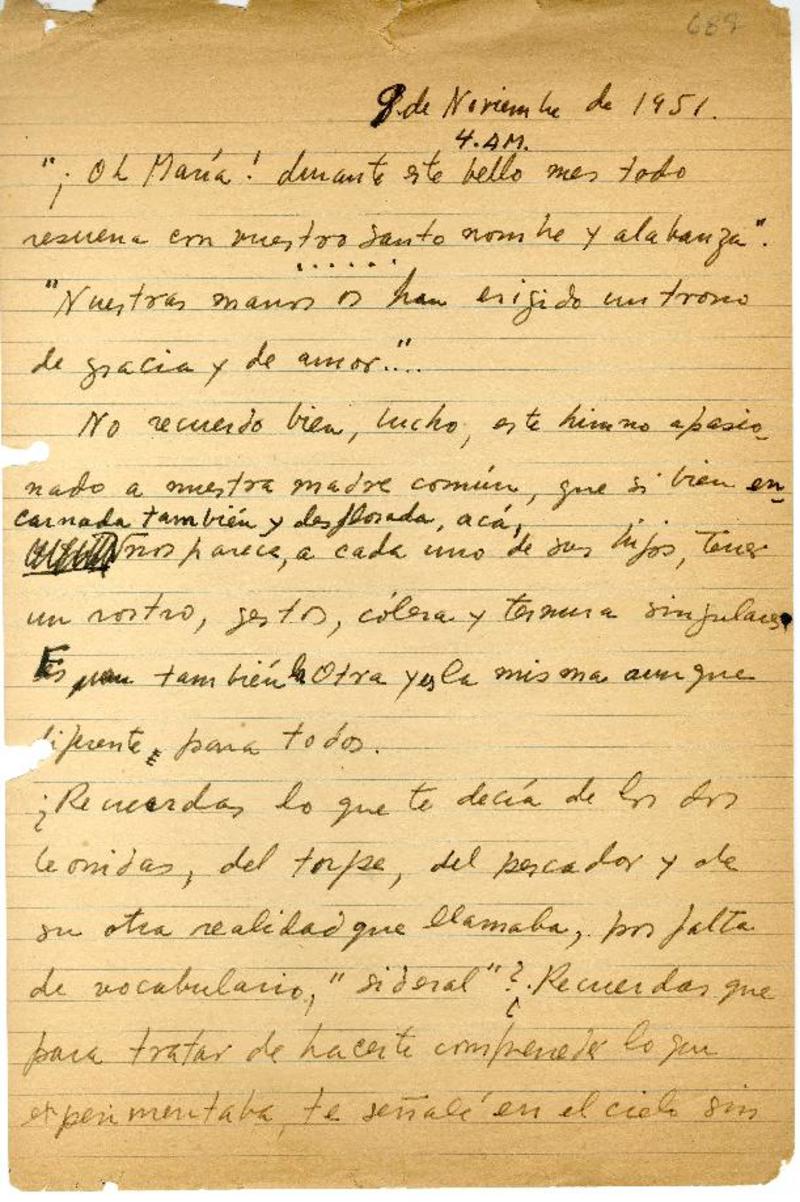 689
8 de Noviembre de 1951.
4. AM.
"¡Oh María! durante este bello mes todo
resuena con vuestro santo nombre y alabanza".
......
"Nuestras manos os han erigido un trono
de gracia y de amor"...
No recuerdo bien, Lucho, este himno apasio-
nado a nuestra madre común, que si bien en-
carnada también y desflorada, acá,
nos parece, a cada uno de sus hijos, tener
un rostro, gestos, cólera y ternura singulares.
Es también la Otra y es la misma aunque
diferente, para todos.
¿Recuerdas lo que te decía de los dos
Leonidas, del torpe, del pescador y de
su otra realidad que llamaba, por falta
de vocabulario, "sideral"? ¿Recuerdas que
para tratar de hacerte comprender lo que
experimentaba, te señalé en el cielo sin